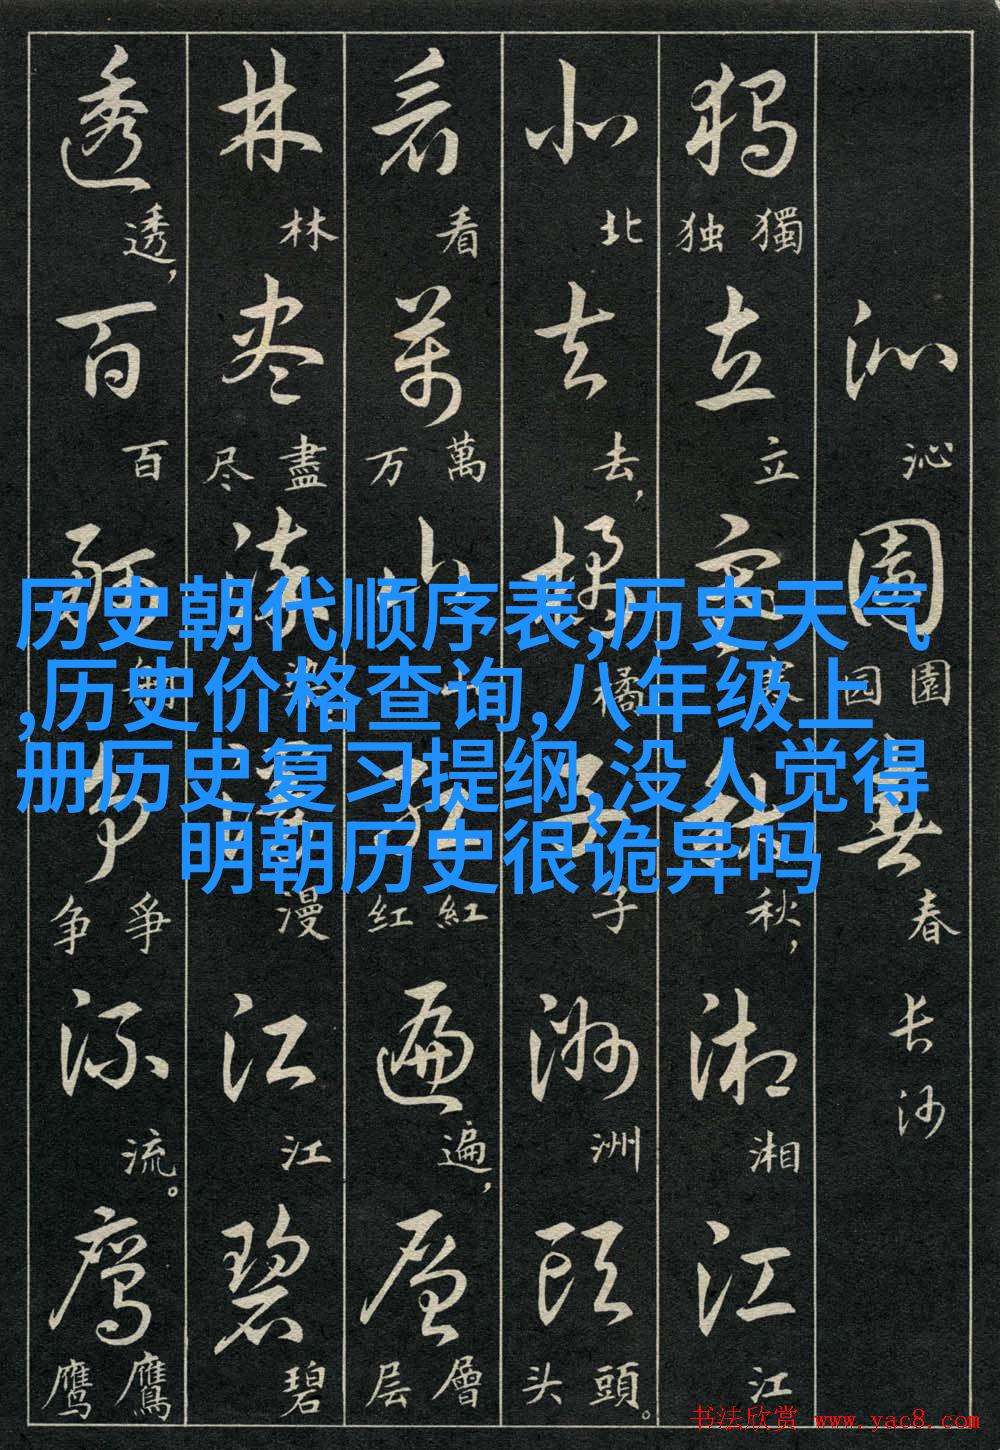 历史朝代顺序表,历史天气
,历史价格查询,八年级上
册历史复习提纲,没人觉得
明朝历史很诡异吗
沁 沁 園 園 园 春 春 长沙
獨 獨 独 立 立 寒 秋 秋， 湘 湘 江 江
北 北 去 去， 橘 橘 子 子 洲 洲 頭 頭。 头
看 看 萬 萬 万 山 紅 紅 红 遍 遍， 層 層 层
林 林 尽 盡 尽 染 漫 漫 江 江 碧 碧
透 透， 百 百 舸 争 爭 争 流 流。 鷹 鷹 鹰
书法欣赏 www.yac8.com